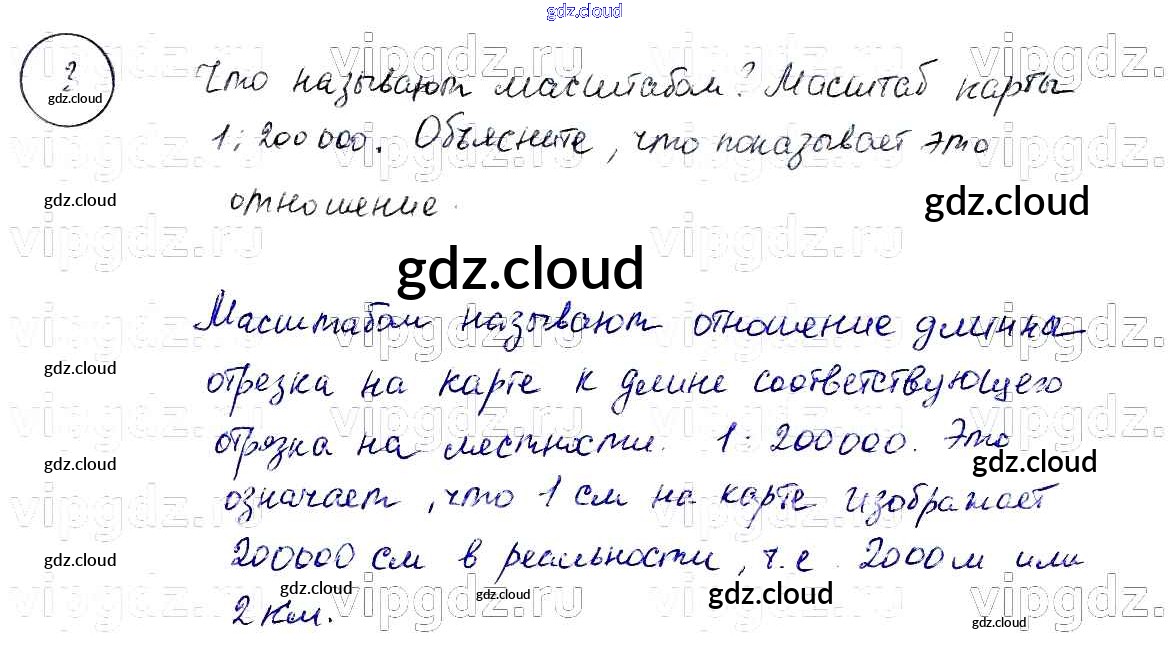 gdz.cloud
?
Что называют масштабом? Масштаб карты
1:200 000. Объясните, что показывает это
отношение.
Масштабом называют отношение длинна
отрезка на карте к длине соответствующего
отрязка на местности. 1:200000. Это
означает, что 1 см на карте изображает
200000 см в реальности, т.е. 2000 м или
2 км.
gdz.cloud
gdz.cloud
gdz.cloud
gdz.cloud
gdz.cloud
gdz.cloud
gdz.cloud
gdz.cloud
gdz.cloud
gdz.cloud
gdz.cloud
gdz.cloud
vipgdz.ru
vipgdz.ru
vipgdz.ru
vipgdz.ru